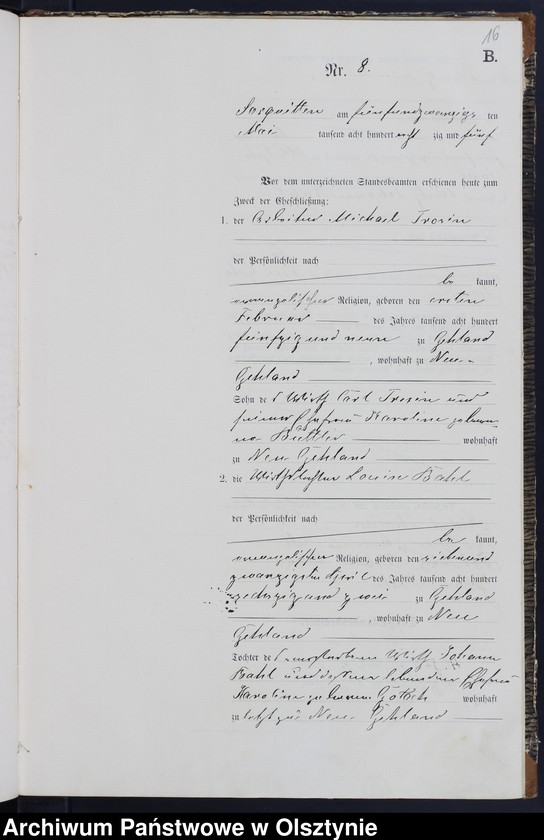 16
B.
Nr. 8.
Sorquitten am fünfundzwanzigs ten
Mai tausend acht hundert acht zig und fünf
Vor dem unterzeichneten Standesbeamten erschienen heute zum
Zweck der Eheschließung:
1. der Arbeiter Michael Trosin
der Persönlichkeit nach
be kannt,
evangelischer Religion, geboren den ersten
Februar des Jahres tausend acht hundert
fünfzig und neun zu Gehland
, wohnhaft zu Neu-
Gehland
Sohn des Wirth Carl Trosin und
seiner Ehefrau Karoline gebore-
ne wohnhaft
zu Neu Gehland
2. die Wirthstochter Louise Bahl
der Persönlichkeit nach
be kannt,
evangelischer Religion, geboren den siebenund
zwanzigsten April des Jahres tausend acht hundert
sechszig und zwei zu Gehland
, wohnhaft zu Neu
Gehland
Tochter des verstorbenen Wirth Johann
Bahl und dessen lebenden Ehefrau
Karoline geborene wohnhaft
zu Neu Gehland
Archiwum Państwowe w Olsztynie